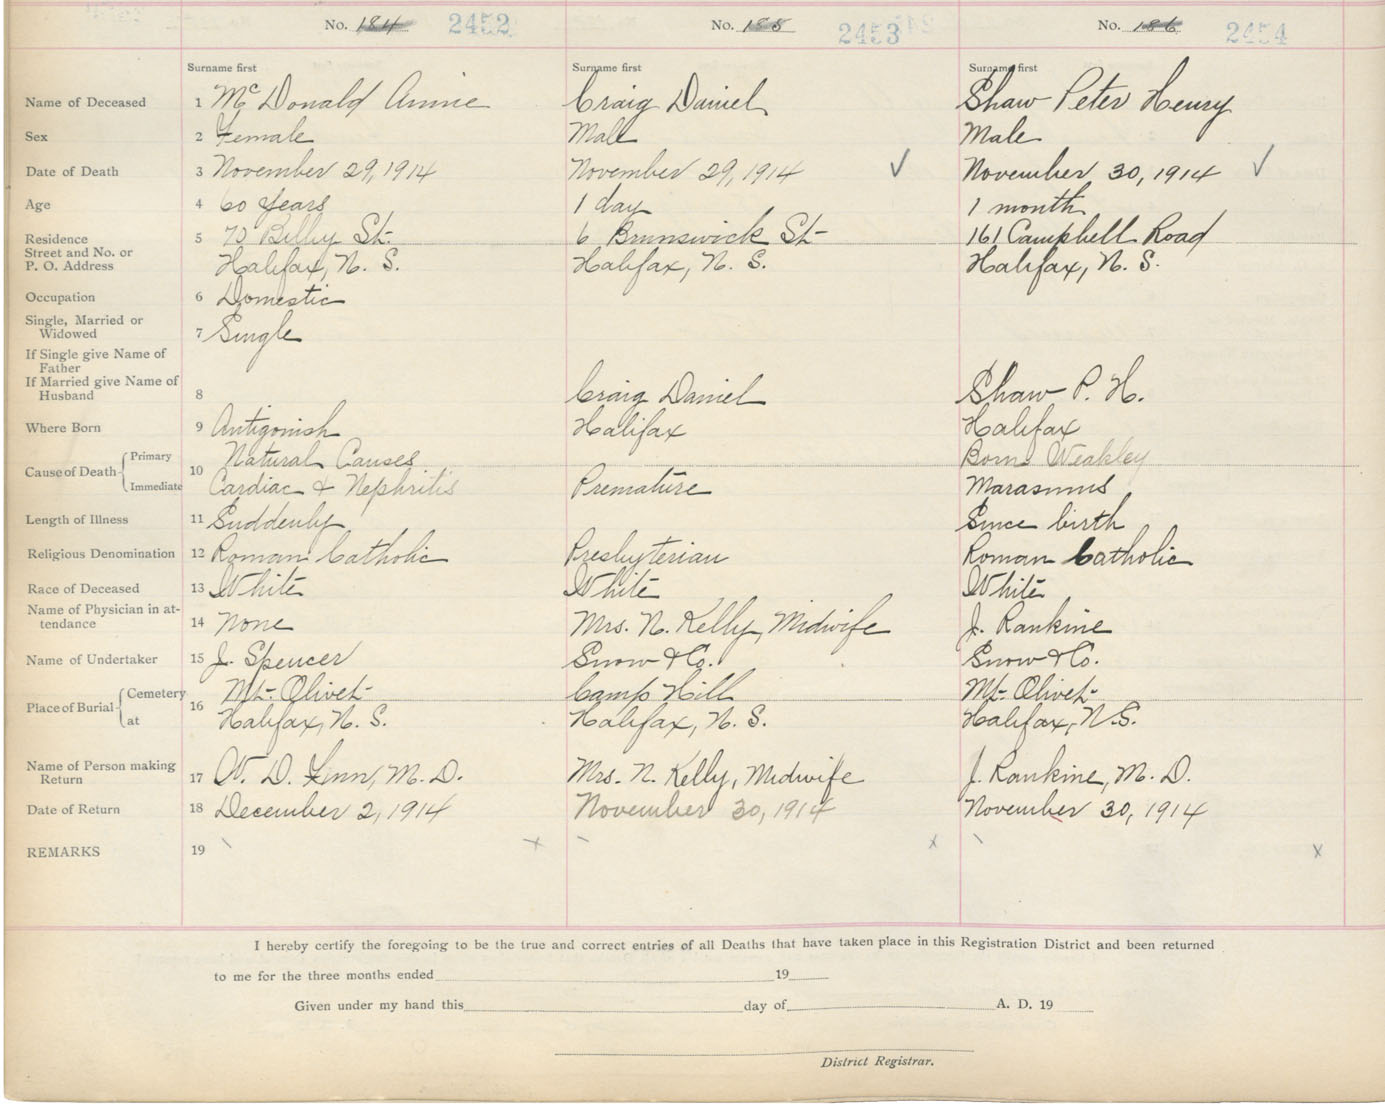 No. 184 2452 No. 185 2453 No. 186 2454
Surname first Surname first Surname first
Name of Deceased 1 McDonald Annie Craig Daniel Shaw Peter Henry
Sex 2 Female Male Male
Date of Death 3 November 29, 1914 November 29, 1914 ✓ November 30, 1914 ✓
Age 4 60 Years 1 day 1 month
Residence 5 St. 6 Brunswick St 161 Campbell Road
Street and No. or
P. O. Address Halifax, N. S. Halifax, N. S. Halifax, N. S.
Occupation 6 Domestic
Single, Married or
Widowed 7 Single
If Single give Name of
Father
If Married give Name of
Husband 8 Craig Daniel Shaw P. H.
Where Born 9 Antigonish Halifax Halifax
Primary Natural Causes Born Weakley
Cause of Death 10
Immediate Cardiac & Nephritis Premature Marasmus
Length of Illness 11 Suddenly Since birth
Religious Denomination 12 Roman Catholic Presbyterian Roman Catholic
Race of Deceased 13 White White White
Name of Physician in at-
tendance 14 None Mrs. N. Kelly, Midwife J. Rankine
Name of Undertaker 15 J. Spencer Snow & Co. Snow & Co.
Cemetery Mt. Olivet Camp Hill Mt. Olivet
Place of Burial 16
at Halifax, N. S. Halifax, N. S. Halifax, N.S.
Name of Person making
Return 17 W. D. Finn, M. D. Mrs. N. Kelly, Midwife J. Rankine, M. D.
Date of Return 18 December 2, 1914 November 30, 1914 November 30, 1914
REMARKS 19 x x x
I hereby certify the foregoing to be the true and correct entries of all Deaths that have taken place in this Registration District and been returned
to me for the three months ended 19
Given under my hand this day of A. D. 19
District Registrar.